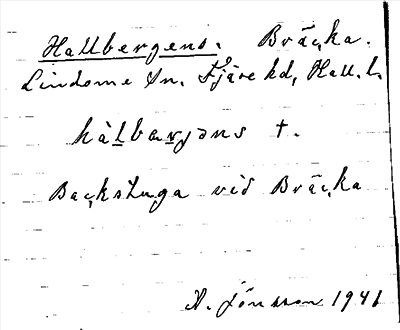 Hallbergens. Bräcka.
Lindome Sn. Fjäre hd, Hall. l.
hàlbærjəns †.
Backstuga vid Bräcka
A. Jönsson 1941